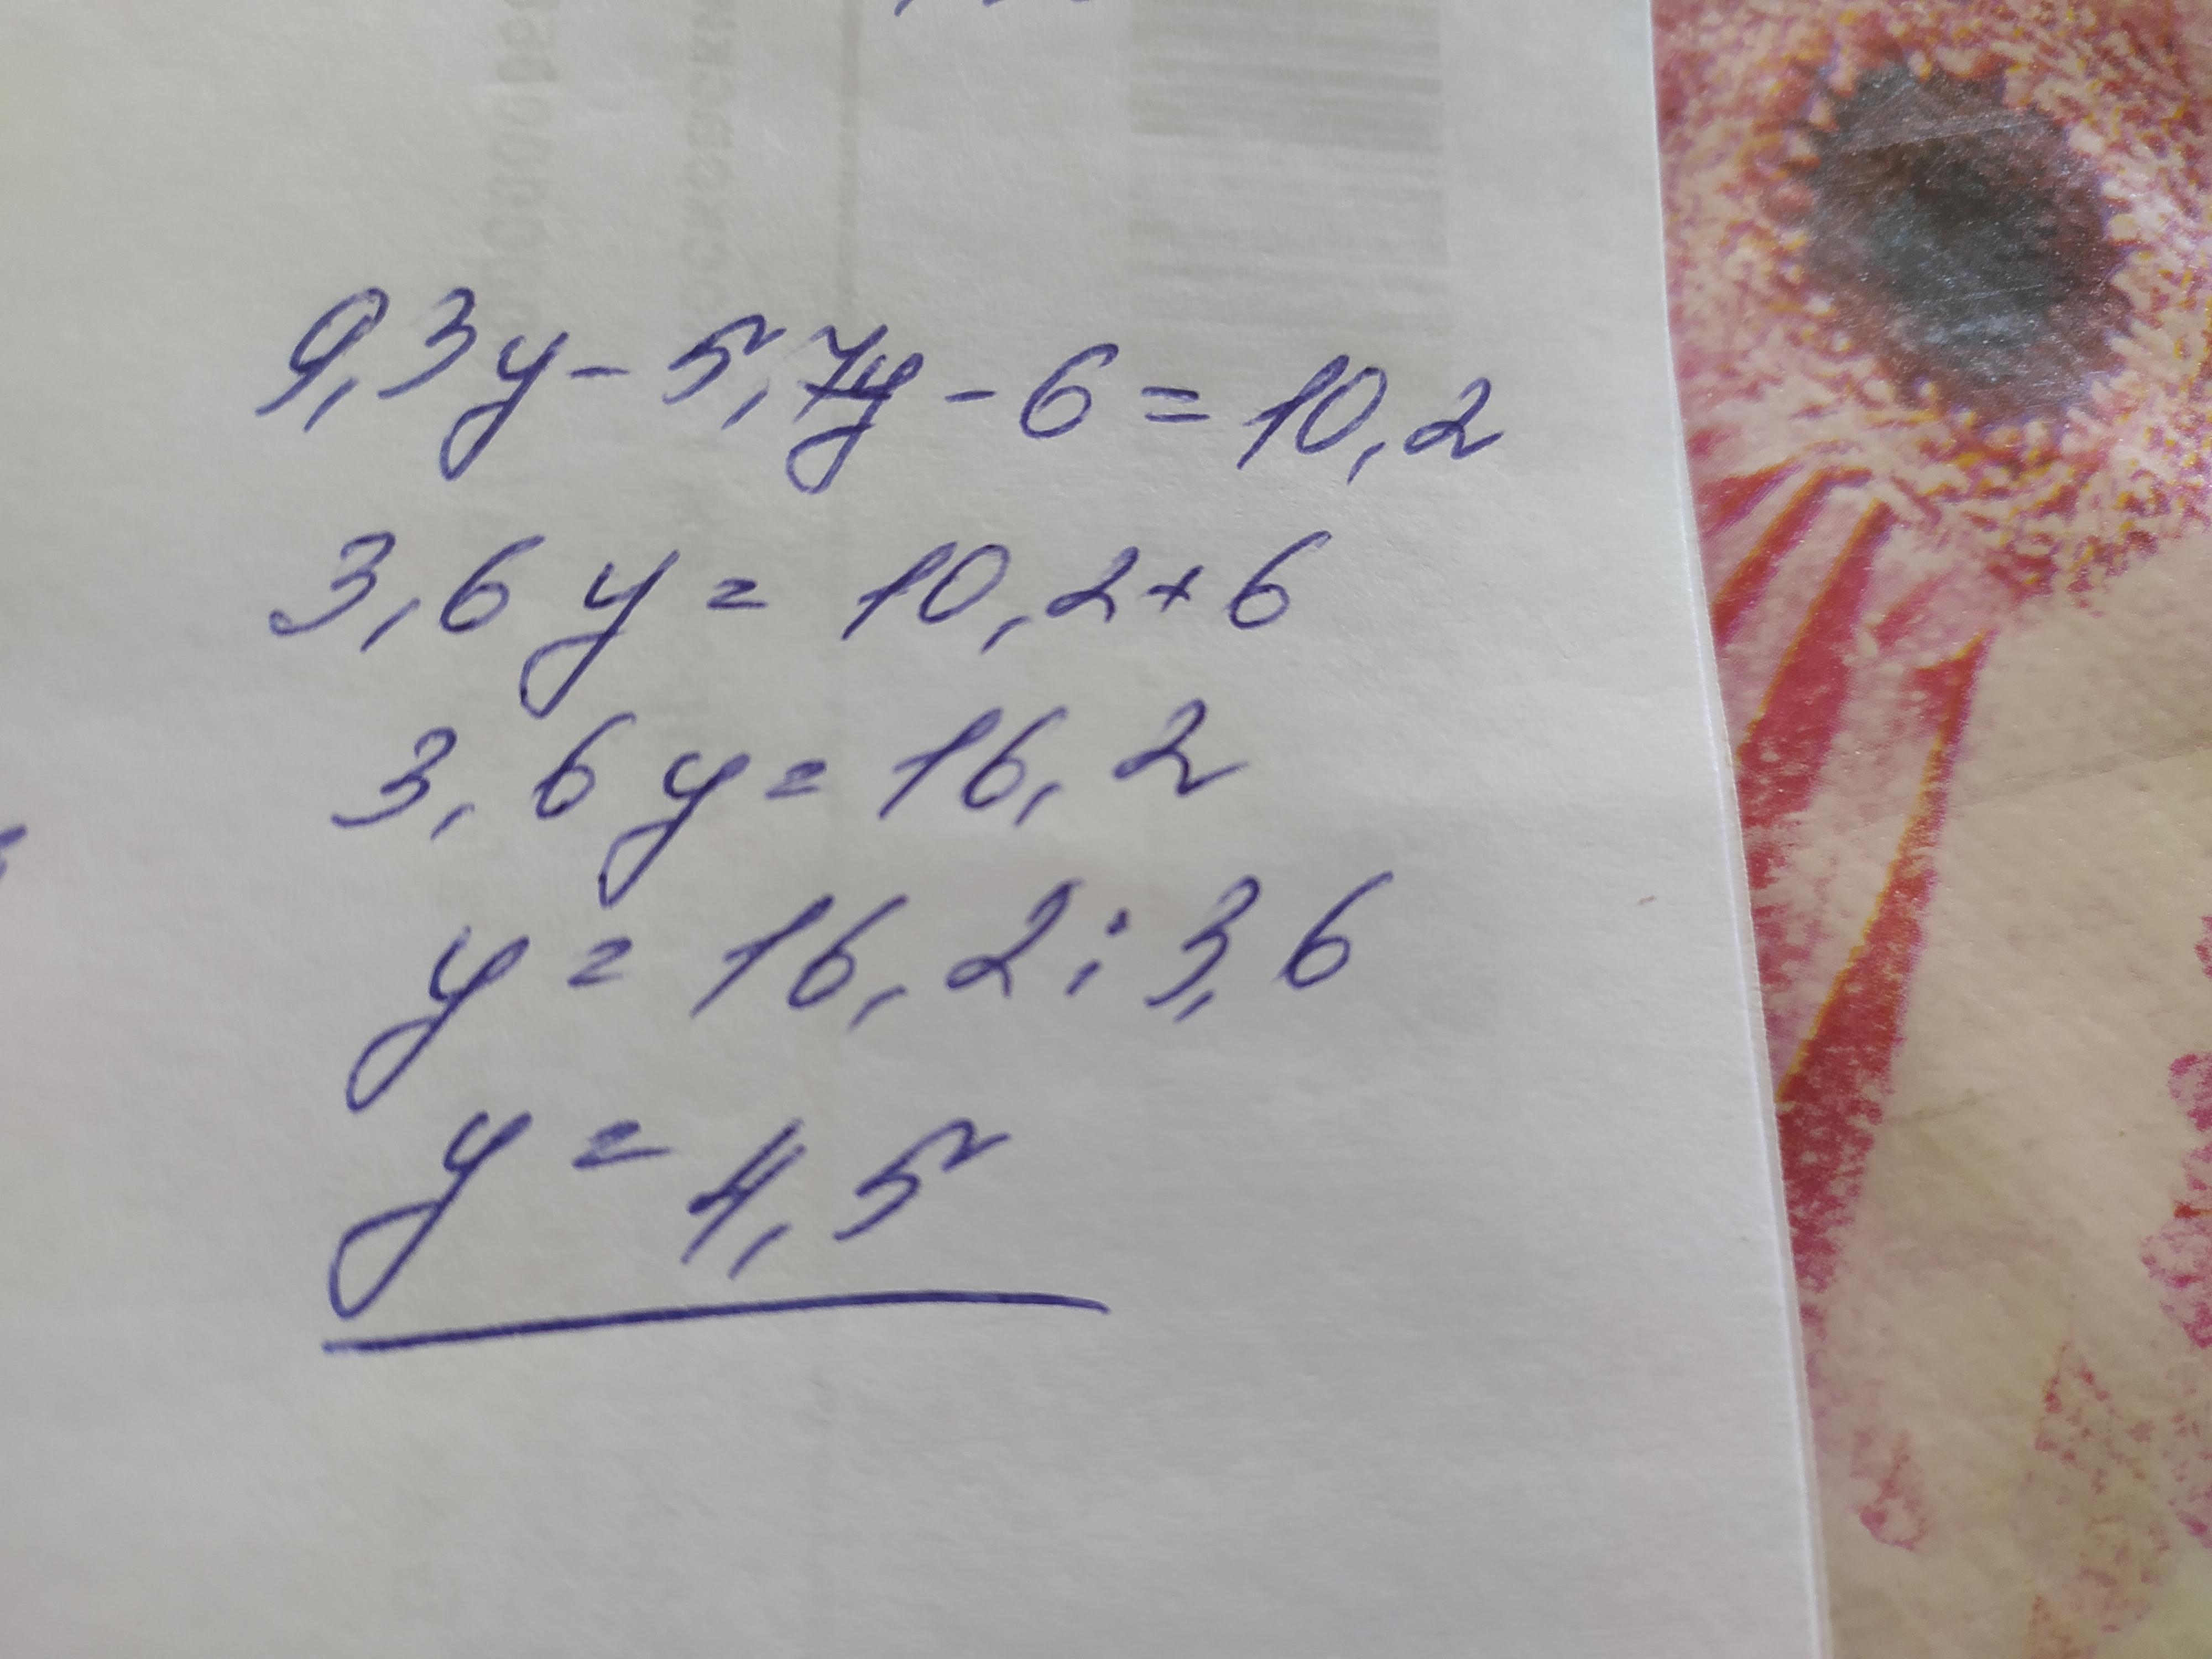 9,3y - 5,7y - 6 = 10,2
3,6y = 10,2 + 6
3,6y = 16,2
y = 16,2 : 3,6
y = 4,5